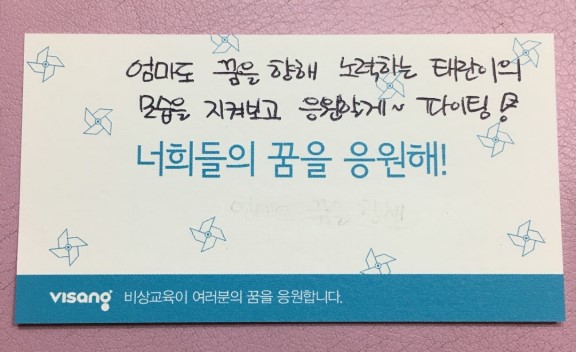 엄마도 꿈을 향해 노력하는 태란이의
모습을 지켜보고 응원할게~ 파이팅!
너희들의 꿈을 응원해!
visang 비상교육이 여러분의 꿈을 응원합니다.